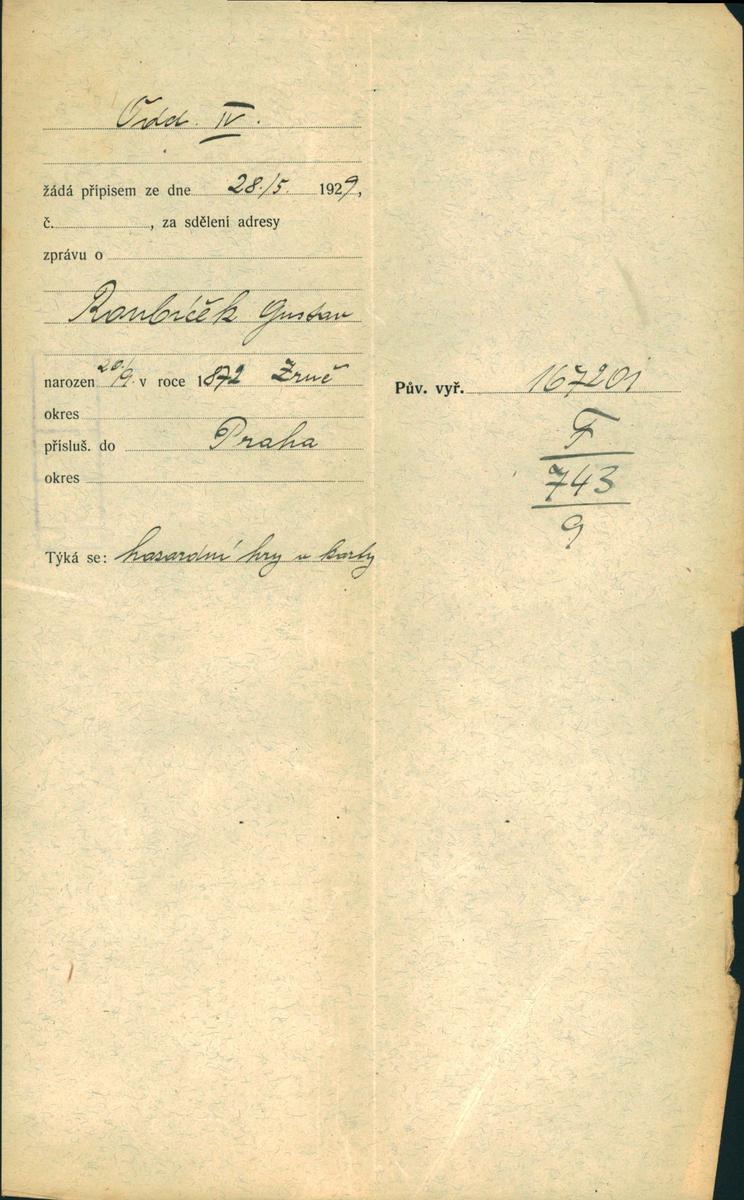 Odd. IV.
žádá přípisem ze dne 28./5. 1929,
č. , za sdělení adresy
zprávu o
Roubíček Gustav
narozen 20./9. v roce 1872 Zruč
okres
přísluš. do Praha
okres
Týká se: hasardní hry v karty
Pův. vyř. 167201
F
743
9